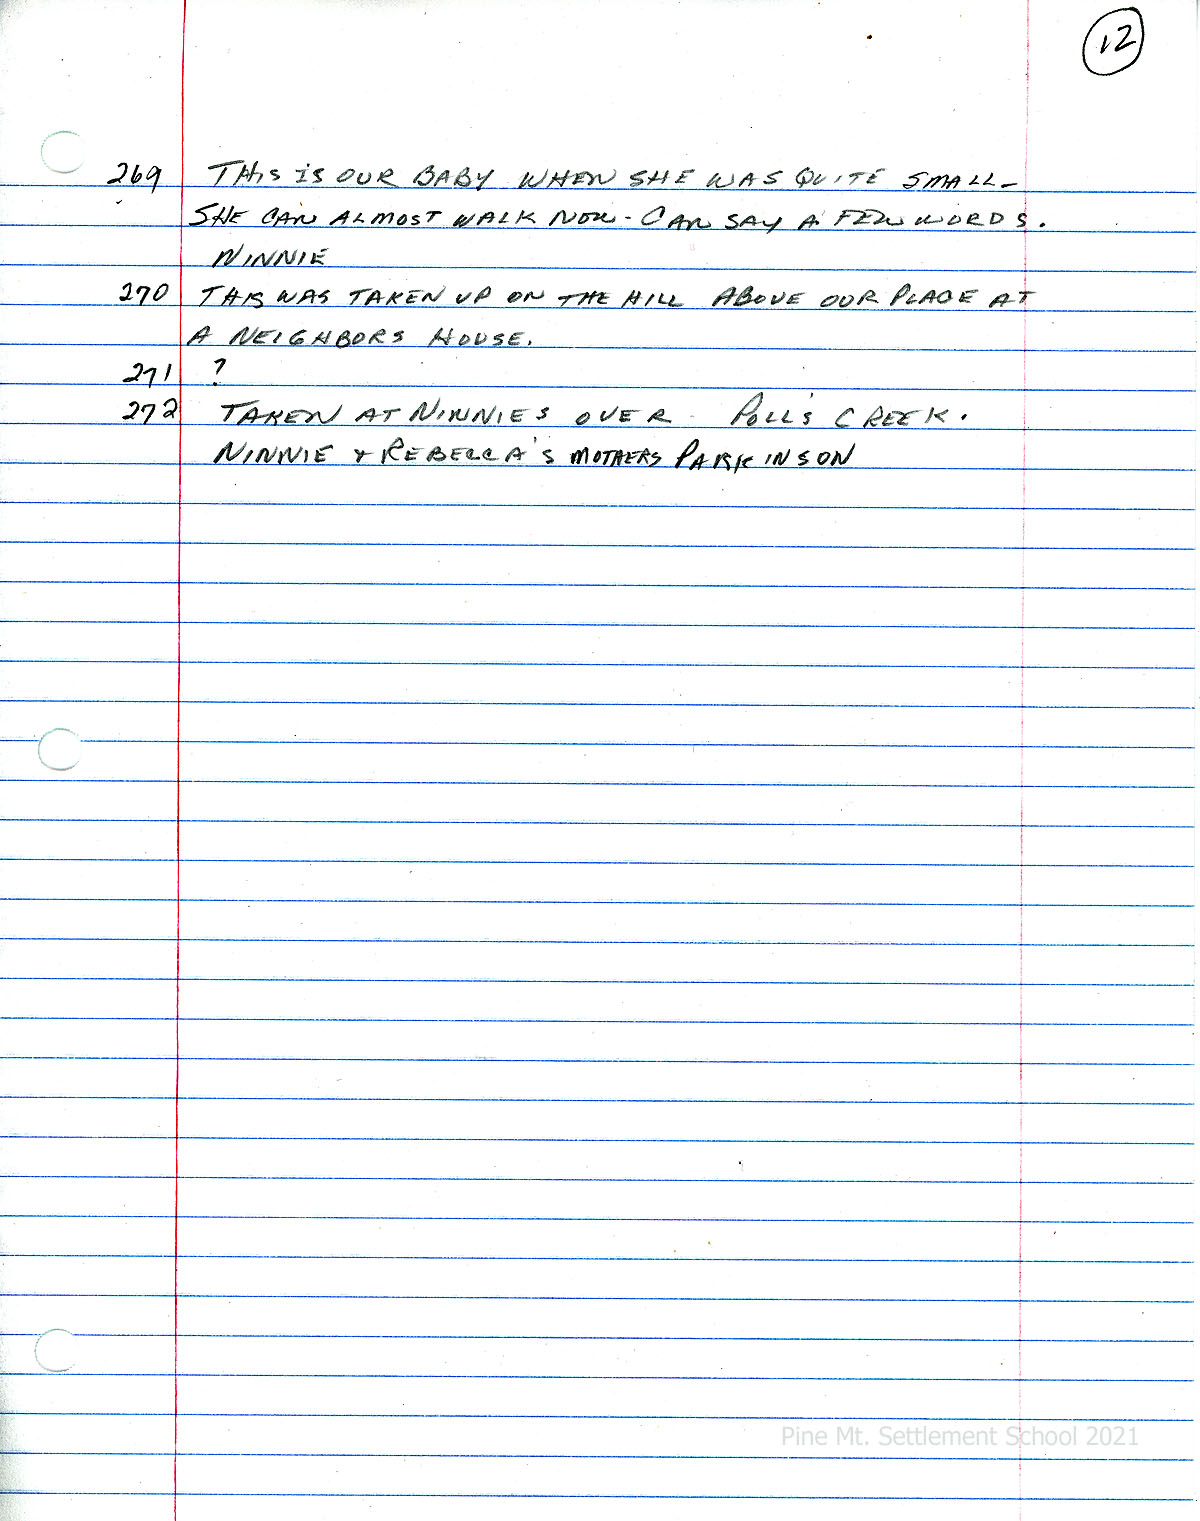 12
269 THIS IS OUR BABY WHEN SHE WAS QUITE SMALL-
SHE CAN ALMOST WALK NOW - CAN SAY A FEW WORDS.
NINNIE
270 THIS WAS TAKEN UP ON THE HILL ABOVE OUR PLACE AT
A NEIGHBORS HOUSE.
271 ?
272 TAKEN AT NINNIES OVER POLL'S CREEK.
NINNIE & REBECCA'S MOTHERS PARKINSON
Pine Mt. Settlement School 2021